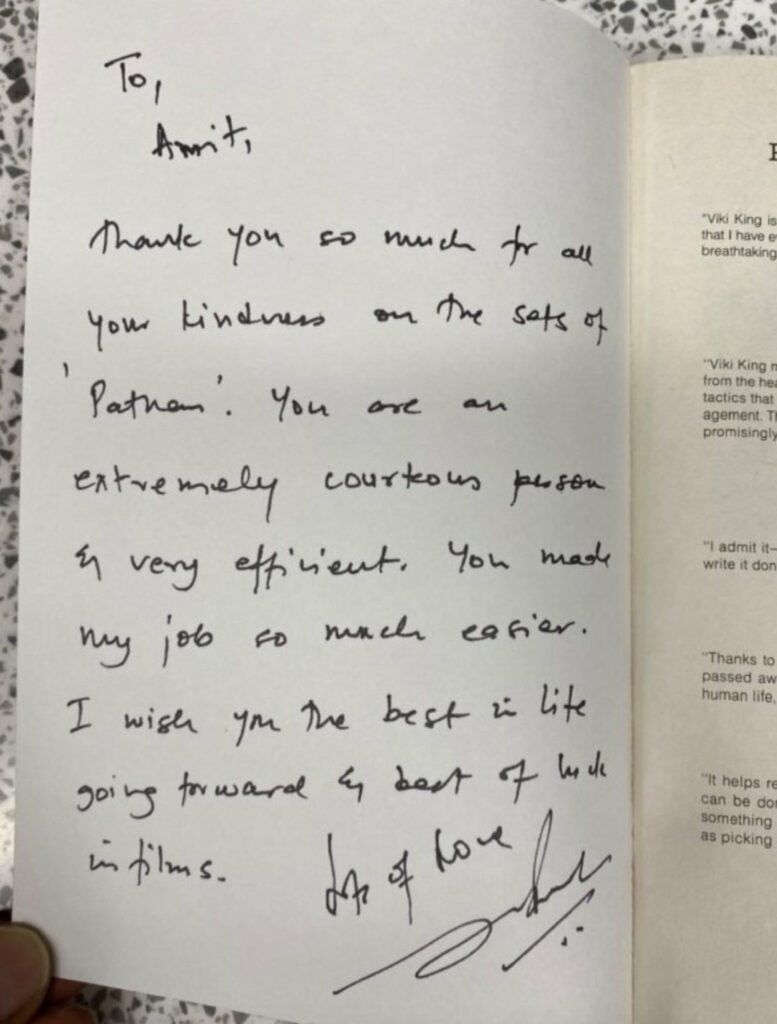 To,
Amrit,
Thank you so much for all
your kindness on the sets of
'Pathan'. You are an
extremely courteous person
& very efficient. You made
my job so much easier.
I wish you the best in life
going forward & best of luck
in films.
Lots of Love
"Viki King is
that I have e
breathtaking
"Viki King m
from the hea
tactics that
agement. Th
promisingly
"I admit it—
write it don
"Thanks to
passed aw
human life,
"It helps re
can be don
something
as picking